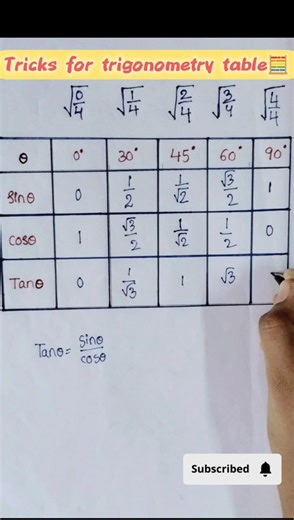 Tricks for trigonometry table🧮
√0/4 √1/4 √2/4 √3/4 √4/4
θ 0° 30° 45° 60° 90°
sinθ 0 1/2 1/√2 √3/2 1
cosθ 1 √3/2 1/√2 1/2 0
Tanθ 0 1/√3 1 √3
Tanθ = sinθ/cosθ
Subscribed